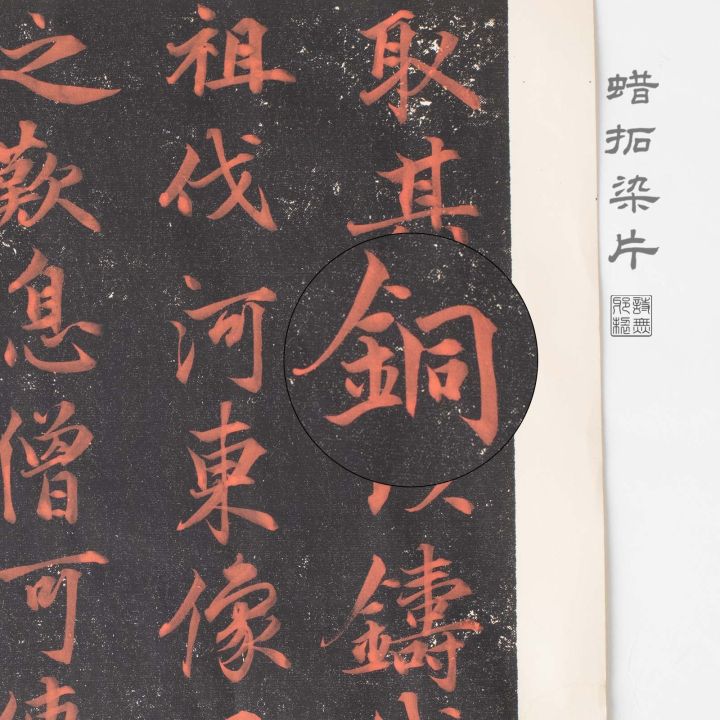 蜡拓染片
取其銅以鑄
祖伐河東像
之歎息僧可